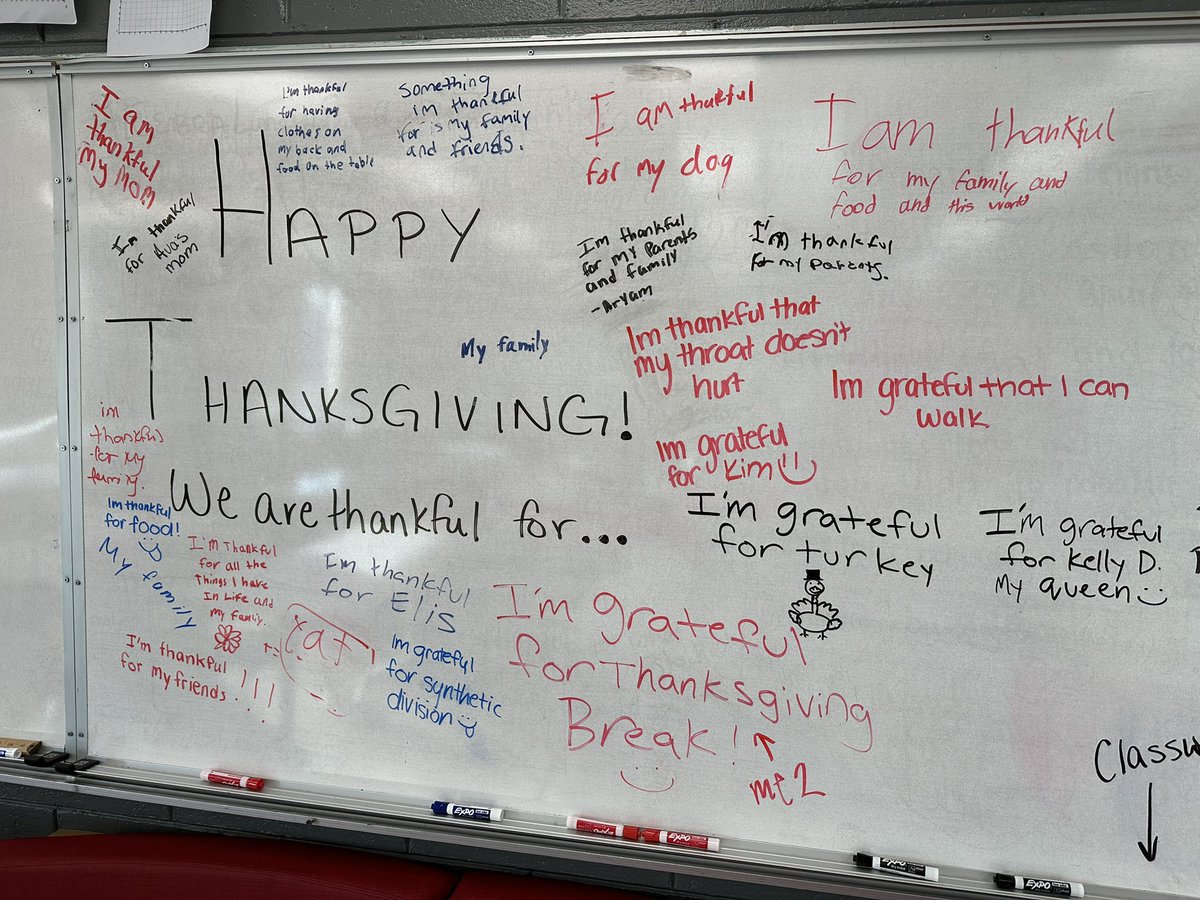 I am
thankful
my mom
I'm thankful
for having
clothes on
my back and
food on the table
Something
im thankful
for is my family
and friends.
I am thakful
for my dog
I am thankful
for my family and
food and this world
Im thankful
for Ava's
mom
HAPPY
Im thankful
for my Parents
and family
-Aryam
I'm thankful
for my parents.
THANKSGIVING!
My family
Im thankful that
my throat doesn't
hurt
Im grateful that I can
walk
im
thankful
for my
family.
Im grateful
for Kim
We are thankful for...
I'm grateful
for turkey
I'm grateful
for Kelly D.
My queen
Im thankful
for food!
My family
I'm Thankful
for all the
things I have
In Life and
my family.
I'm thankful
for my friends!!!
Im thankful
for Elis
Im grateful
for synthetic
division
I'm grateful
for Thanksgiving
Break!
me 2
Classw
EXPO
EXPO
EXPO
EXPO